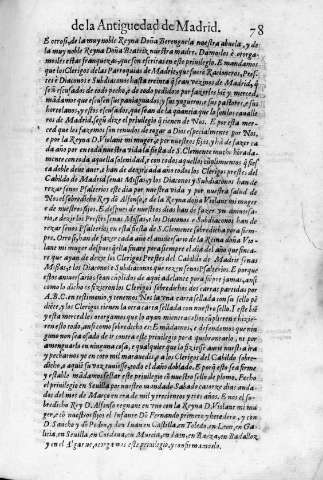 de la Antiguedad de Madrid. 78
E otrosi, de la muy noble Reyna Doña Berenguela nuestra abuela, y de
la muy noble Reyna Doña Beatriz nuestra madre. Damosles è otorga-
mosles estas franquezas, que son escritas en este privilegio. E mandamos
que los Clerigos de las Parroquias de Madrid, que fuere Racioneros, Pres-
tes è Diaconos è Subdiaconos hasta treinta que sean vezinos de Madrid,
señ escusados de todo pecho, è de todo pedido: e por fazerles biẽ y merced,
mãdamos que escusen sus paniaguados, y sus yugueros, e sus pastores, e sus
hortelanos, y estos escusados, que sean de la quantia que la son los cavalle-
ros de Madrid, segũ dize el privilegio que tienen de Nos. E por esta mer-
ced que les fazemos son tenudos de rogar a Dios especialmente por Nos,
e por la Reyna D. Violante mi muger, e por nuestros fijos, y hã de fazer ca
da año por en toda nuestra vida la fiesta de S. Clemente mucho honrada-
mente con toda aquella solenidad, e con todos aquellos cũplimentos que fies
ta doble deve aver, e han de dezir cada año todos los Clerigos prestes del
Cabildo de Madrid senas Missas, y los Diaconos e Subdiaconos han de
rezar senos Psalterios este dia por nuestra vida y por nuestra salud de
Nos el sobredicho Rey do Alfonso, e de la Reyna doña Violante mi muger
e de nuestros fijos. E despues de nuestros dias han de fazer un anniversa-
rio, e dezir los Prestes senas Missas, e los Diaconos e Subdiaconos han de
rezar senos Psalterios en esta fiesta de S. Clemente sobredicha para siem-
pre. Otrosi, han de fazer cada año el aniversario de la Reina doña Vio-
lante mi muger despues que la finare para siempre el dia del año que finca-
re que ayan de dezir los Clerigos Prestes del Cabildo de Madrid senas
Missas, e los Diaconos e Subdiaconos que rezen senos Psalterios. E porque
estos aniversarios sean cũplidos de aqui adelante para siempre jamas, ansi
como lo dicho es fizieron los Clerigos sobredichos dos cartas partidas por
A.B.C. en testimonio, y tenemos Nos la vna carta sellada con su sello pẽ
diete, y los Clerigos tienen la otra carta sellada con nuestro sello. I este biẽ
y esta merced les otorgamos que lo ayan mientra aquesto cũpliere e hizie-
re en esto todo, ansi como sobredicho es: E mãdamos, e defendemos que nin-
guno non sea osado de ir contra este privilegio para quebrantarlo, ni pa-
ra menguarlo en ninguna cosa, e qualquier que lo fiziesse aurie nuestra ira
y pecharnos ye en coto mil maravedis, e a los Clerigos del Cabildo sobre-
dicho, e a qui su voz tuviesse, todo el daño doblado. E porq̃ esto sea firme
y estable mãdamos sellar este privilegio cõ nuestro sello de plomo. Fecho
el privilegio en Sevilla por nuestro mandado Sabado catorze dias anda-
dos del mes de Março en era de mil y trecientos y tres años. E nos el so-
bredicho Rey D. Alfonso regnante en vno con la Reyna D. Violante mi mu
ger, e cõ nuestros fijos el Infante Dõ Fernando primero y heredero, y con
D. Sancho y dõ Pedro, y don Iuan en Castilla, en Toledo, en Leon, en Ga-
lizia, en Sevilla, en Cordova, en Murcia, en Iaen, en Baeza, en Badalloz,
y en el Algarue, otorgamos este privilegio, y confirmamoslo.